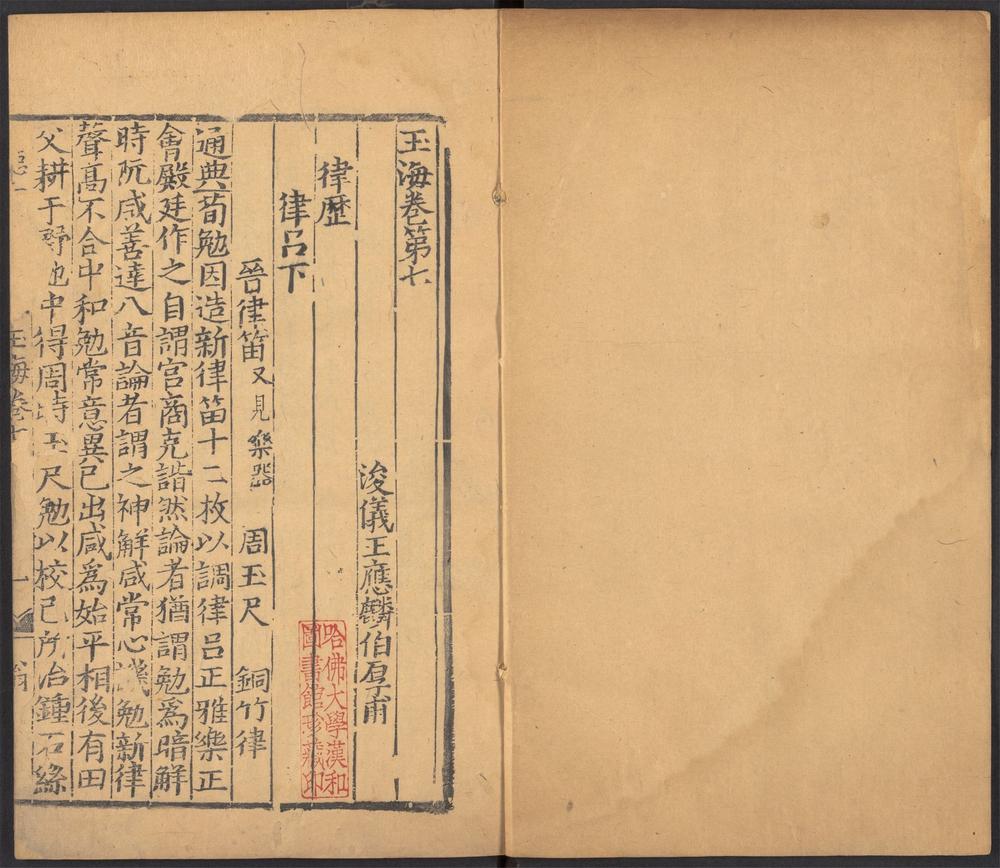 玉海卷第七
浚儀王應麟伯厚甫
律歷
律呂下
晉律笛又見樂器 周玉尺 銅竹律
通典荀勉因造新律笛十二枚以調律呂正雅樂正
會殿廷作之自謂宫商克諧然論者猶謂勉爲暗解
時阮咸善達八音論者謂之神解咸常心譏勉新律
聲髙不合中和勉常意異己出咸爲始平相後有田
父耕于野地中得周時玉尺勉以校己所治鍾石絲
玉海卷十
一
哈佛大學漢和
圖書館珍藏印